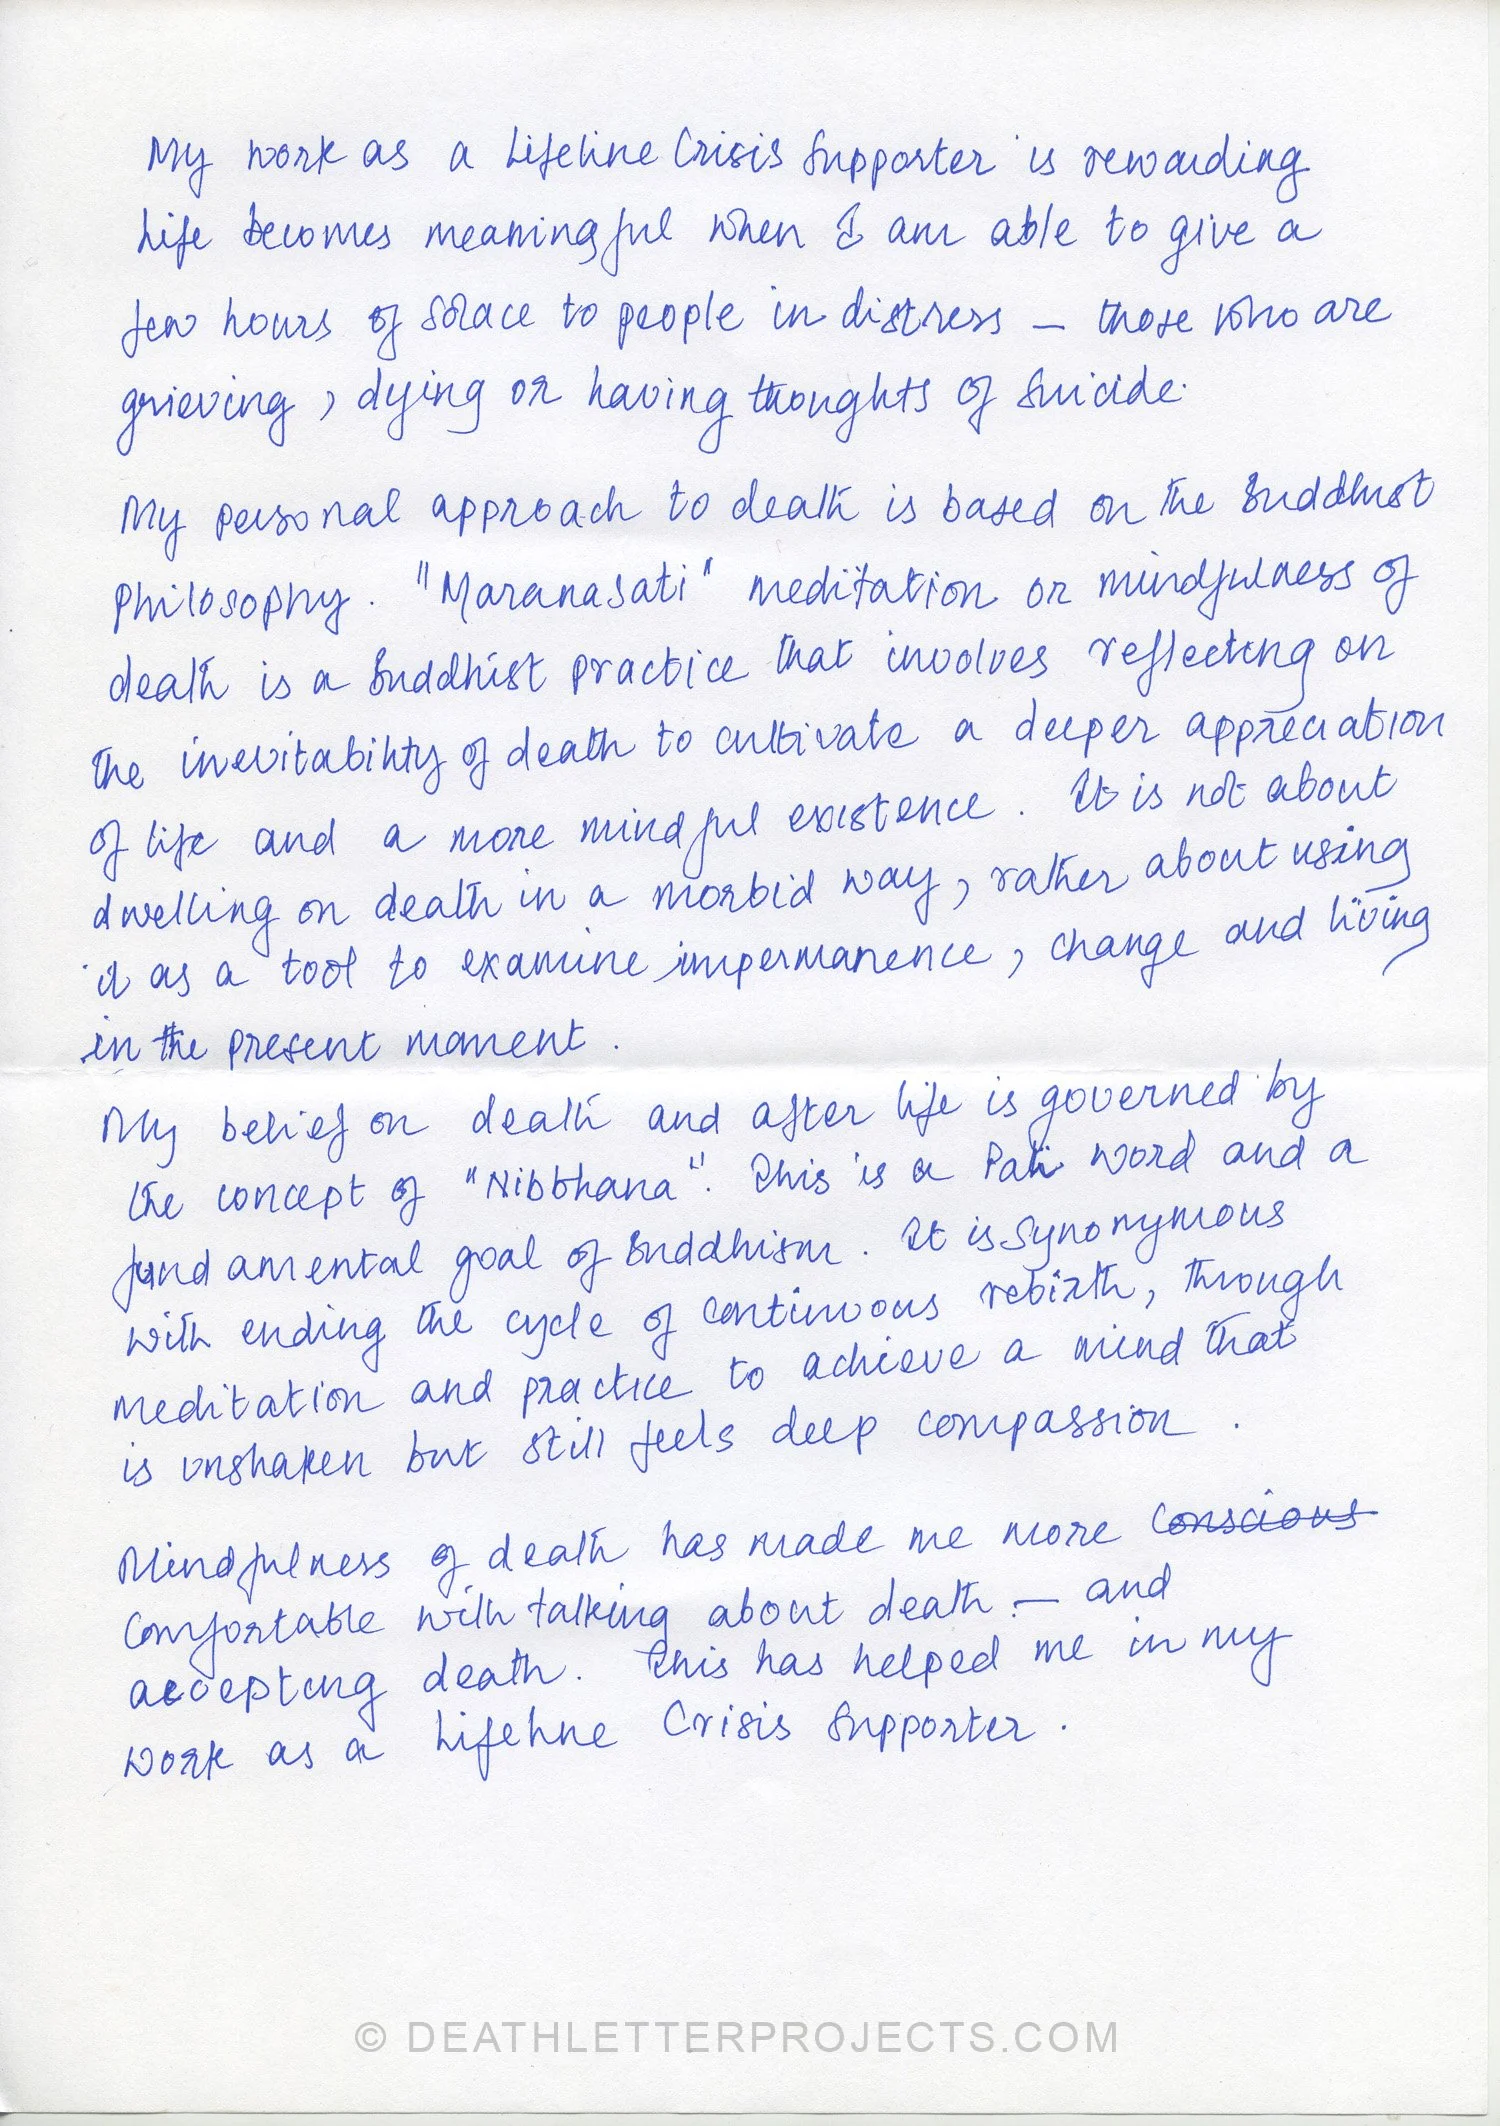 My work as a Lifeline Crisis Supporter is rewarding
Life becomes meaningful when I am able to give a
few hours of solace to people in distress – those who are
grieving, dying or having thoughts of suicide.
My personal approach to death is based on the Buddhist
Philosophy. "Maranasati" meditation or mindfulness of
death is a Buddhist practice that involves reflecting on
the inevitability of death to cultivate a deeper appreciation
of life and a more mindful existence. It is not about
dwelling on death in a morbid way, rather about using
it as a tool to examine impermanence, change and living
in the present moment.
My belief on death and after life is governed by
the concept of "Nibbhana". This is a Pali word and a
fundamental goal of Buddhism. It is synonymous
with ending the cycle of continuous rebirth, through
meditation and practice to achieve a mind that
is unshaken but still feels deep compassion.
Mindfulness of death has made me more conscious
comfortable with talking about death – and
accepting death. This has helped me in my
work as a Lifeline Crisis Supporter.
© DEATHLETTERPROJECTS.COM